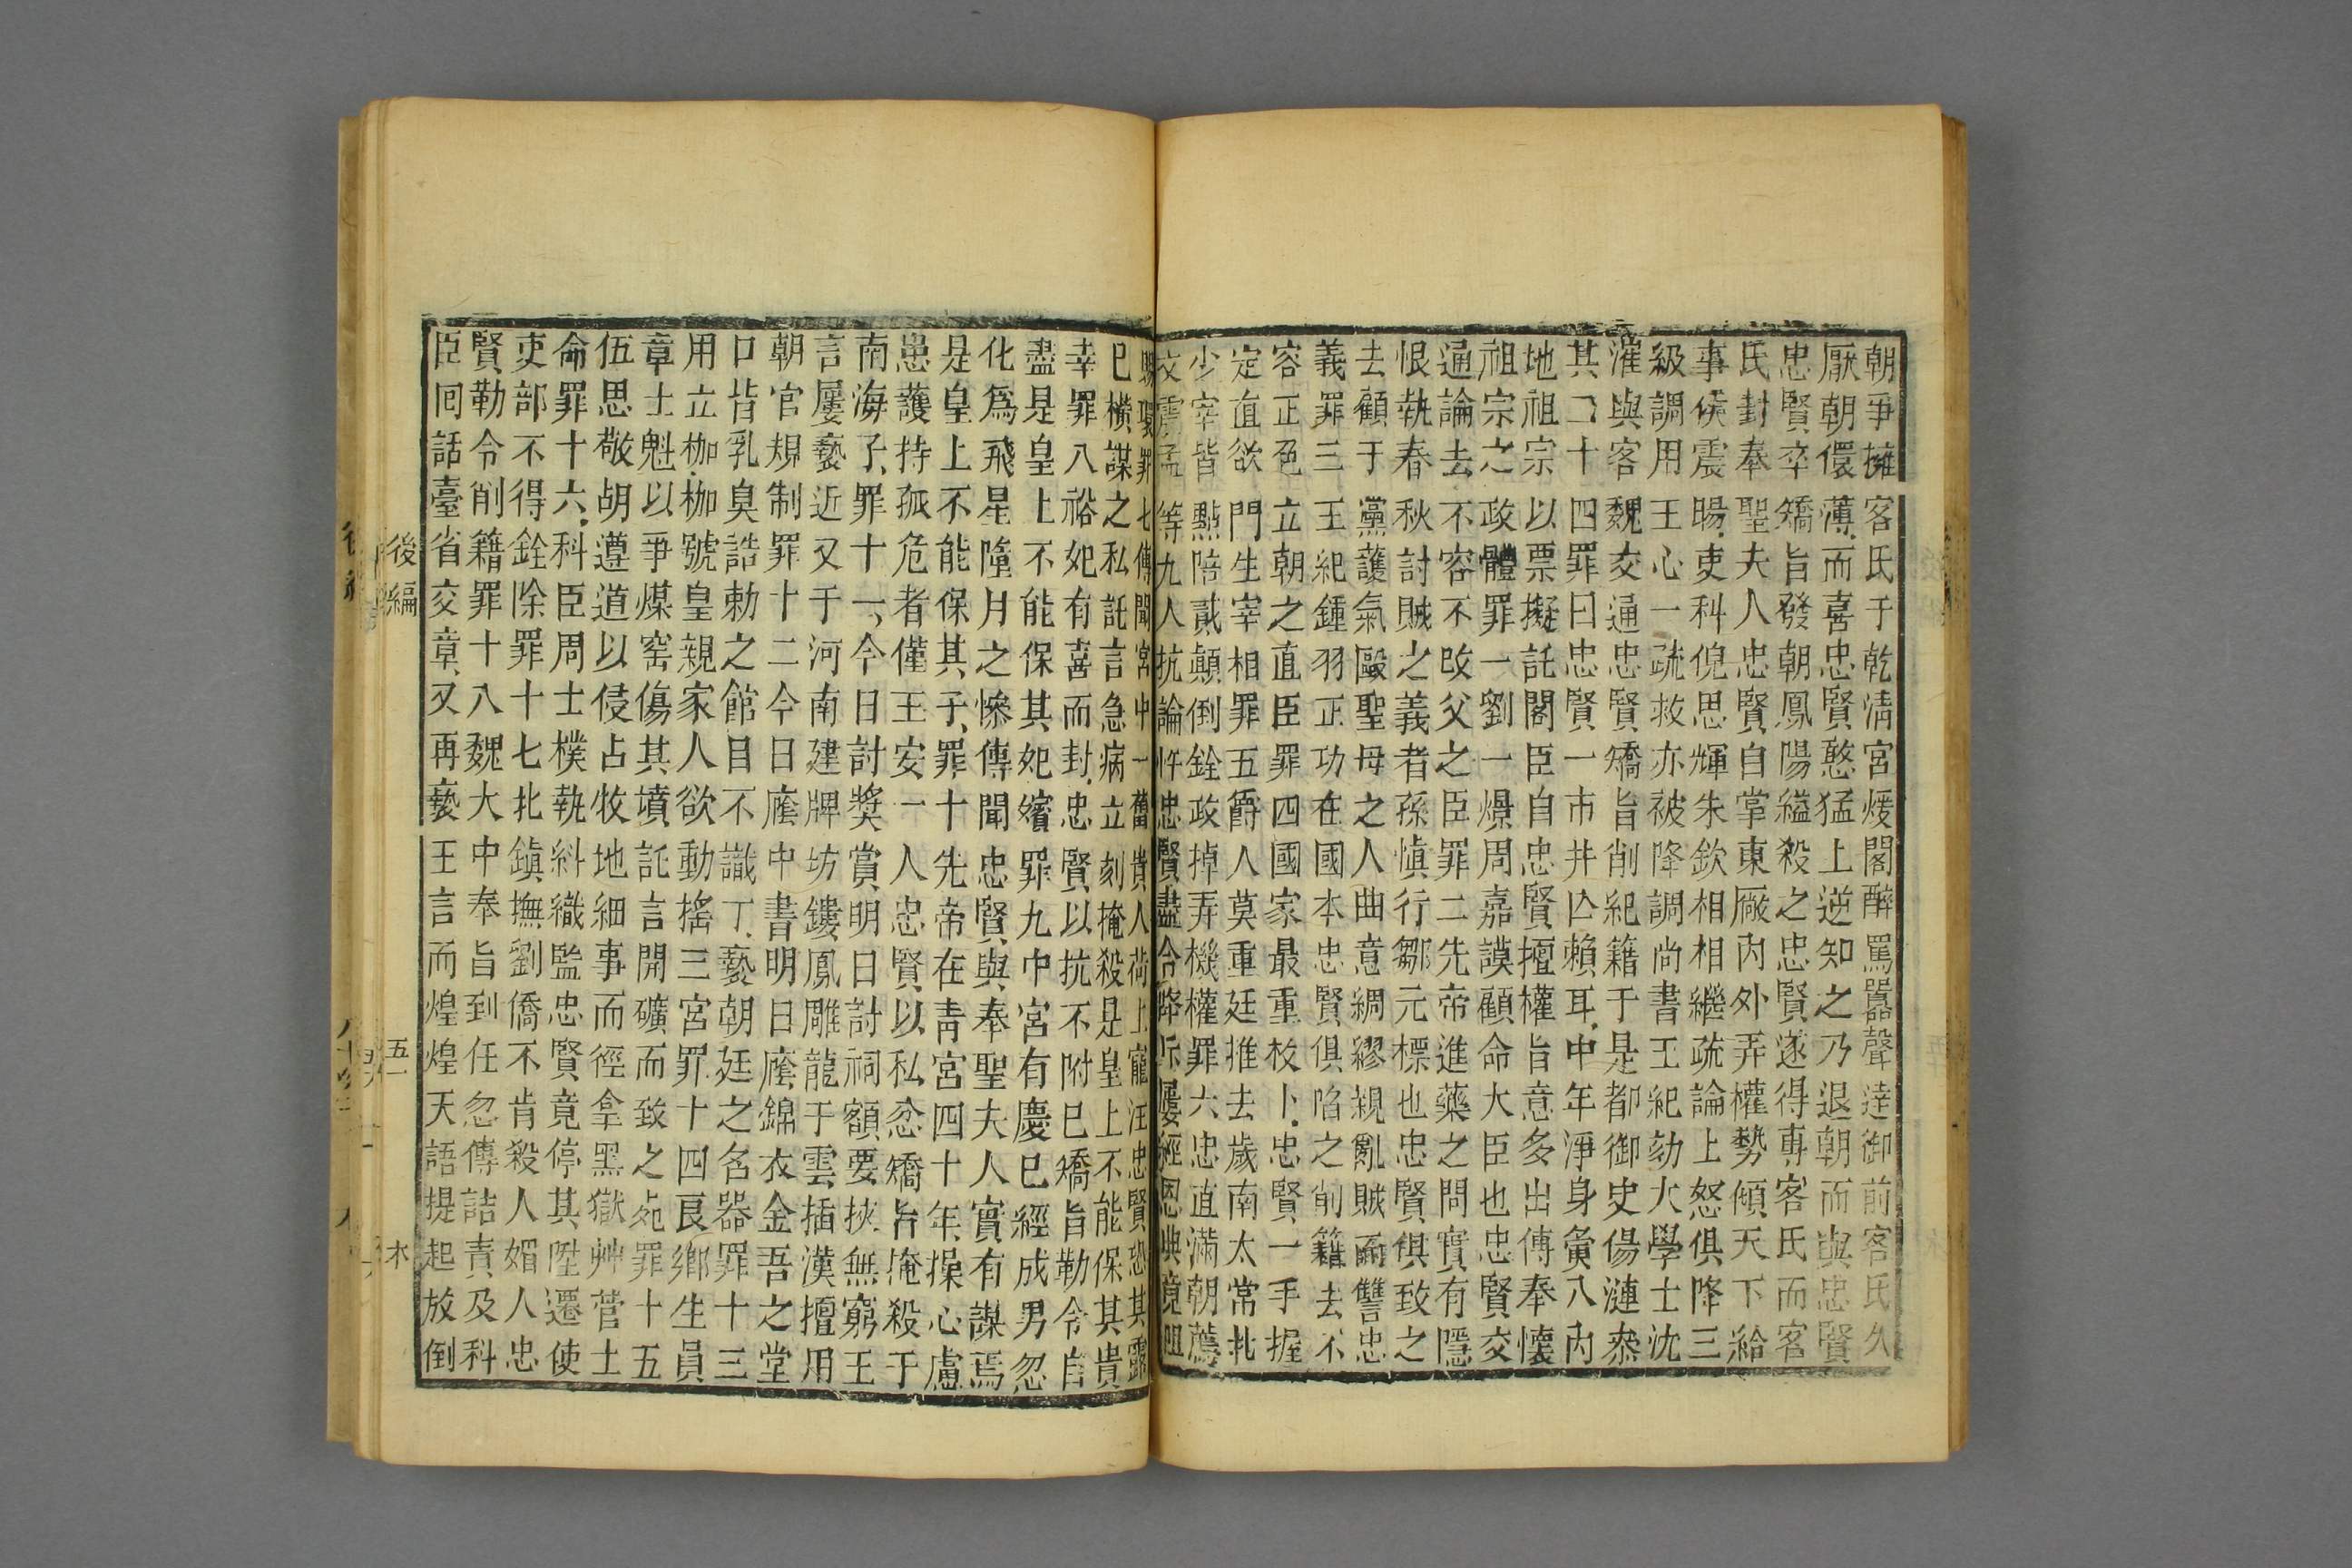 朝爭擁客氏于乾淸宮煖閣醉罵囂聲達御前客氏久
厭朝儇薄而喜忠賢憨猛上逆知之乃退朝而與忠賢
忠賢卒矯旨發朝鳳陽縊殺之忠賢遂得專客氏而客
氏封奉聖夫人忠賢自掌東厰內外弄權勢傾天下給
事侯震暘吏科倪思輝朱欽相相繼疏論上怒俱降三
級調用王心一疏救亦被降調尚書王紀劾大學士沈
㴶與客魏交通忠賢矯旨削紀籍于是都御史楊漣叅
其二十四罪曰忠賢一市井亾賴耳中年淨身夤入內
地祖宗以票擬託閣臣自忠賢擅權旨意多出傳奉懷
祖宗之政體罪一劉一燝周嘉謨顧命大臣也忠賢交
通論去不容不改父之臣罪二先帝進藥之間實有隱
恨執春秋討賊之義者孫愼行鄒元標也忠賢俱致之
去顧于黨護氣毆聖母之人曲意綢繆親亂賊而讐忠
義罪三王紀鍾羽正功在國本忠賢俱陷之削籍去不
容正色立朝之直臣罪四國家最重枚卜忠賢一手握
定直欲門生宰相罪五爵人莫重廷推去歲南太常北
少宰皆點陪貳顚倒銓政掉弄機權罪六忠直滿朝薦
文震孟等九人抗論忤忠賢盡令降斥屢經恩典竟阻
賜環罪七傳聞宮中一舊貴人荷上寵汪忠賢恐其露
已橫謀之私託言急病立刻掩殺是皇上不能保其貴
幸罪八裕妃有喜而封忠賢以抗不附已矯旨勒令自
盡是皇上不能保其妃嬪罪九中宮有慶已經成男忽
化爲飛星隕月之慘傳聞忠賢與奉聖夫人實有謀焉
是皇上不能保其子罪十先帝在靑宮四十年操心慮
患護持孤危者僅王安一人忠賢以私忿矯旨掩殺于
南海子罪十一今日討獎賞明日討祠額要挾無窮王
言屢褻近又于河南建牌坊鏤鳳雕龍于雲插漢擅用
朝官規制罪十二今日廕中書明日廕錦衣金吾之堂
口皆乳臭誥勅之館目不識丁褻朝廷之名器罪十三
用立枷枷號皇親家人欲動搖三宮罪十四良鄉生員
章士魁以爭煤窑傷其墳託言開礦而致之死罪十五
伍思敬胡遵道以侵占牧地細事而徑拿黑獄艸菅士
命罪十六科臣周士樸執糾織監忠賢竟停其陞遷使
吏部不得銓除罪十七北鎮撫劉僑不肯殺人媚人忠
賢勒令削籍罪十八魏大中奉旨到任忽傳詰責及科
臣囘話臺省交章又再褻王言而煌煌天語提起放倒
後編
五一
木